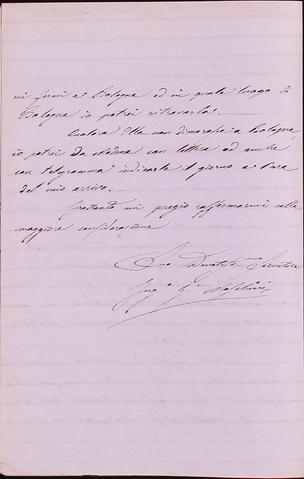 mi fermi a Bologna ed in quale luogo di
Bologna io potrei ritrovarla.
Qualora Ella non dimorasse a Bologna
io potrei da Modena con lettera od anche
con telegramma indicarle il giorno e l'ora
del mio arrivo.
Frattanto mi pregio raffermarmi colla
maggiore considerazione
Suo Devotis.mo Servitore
Ing.e G.